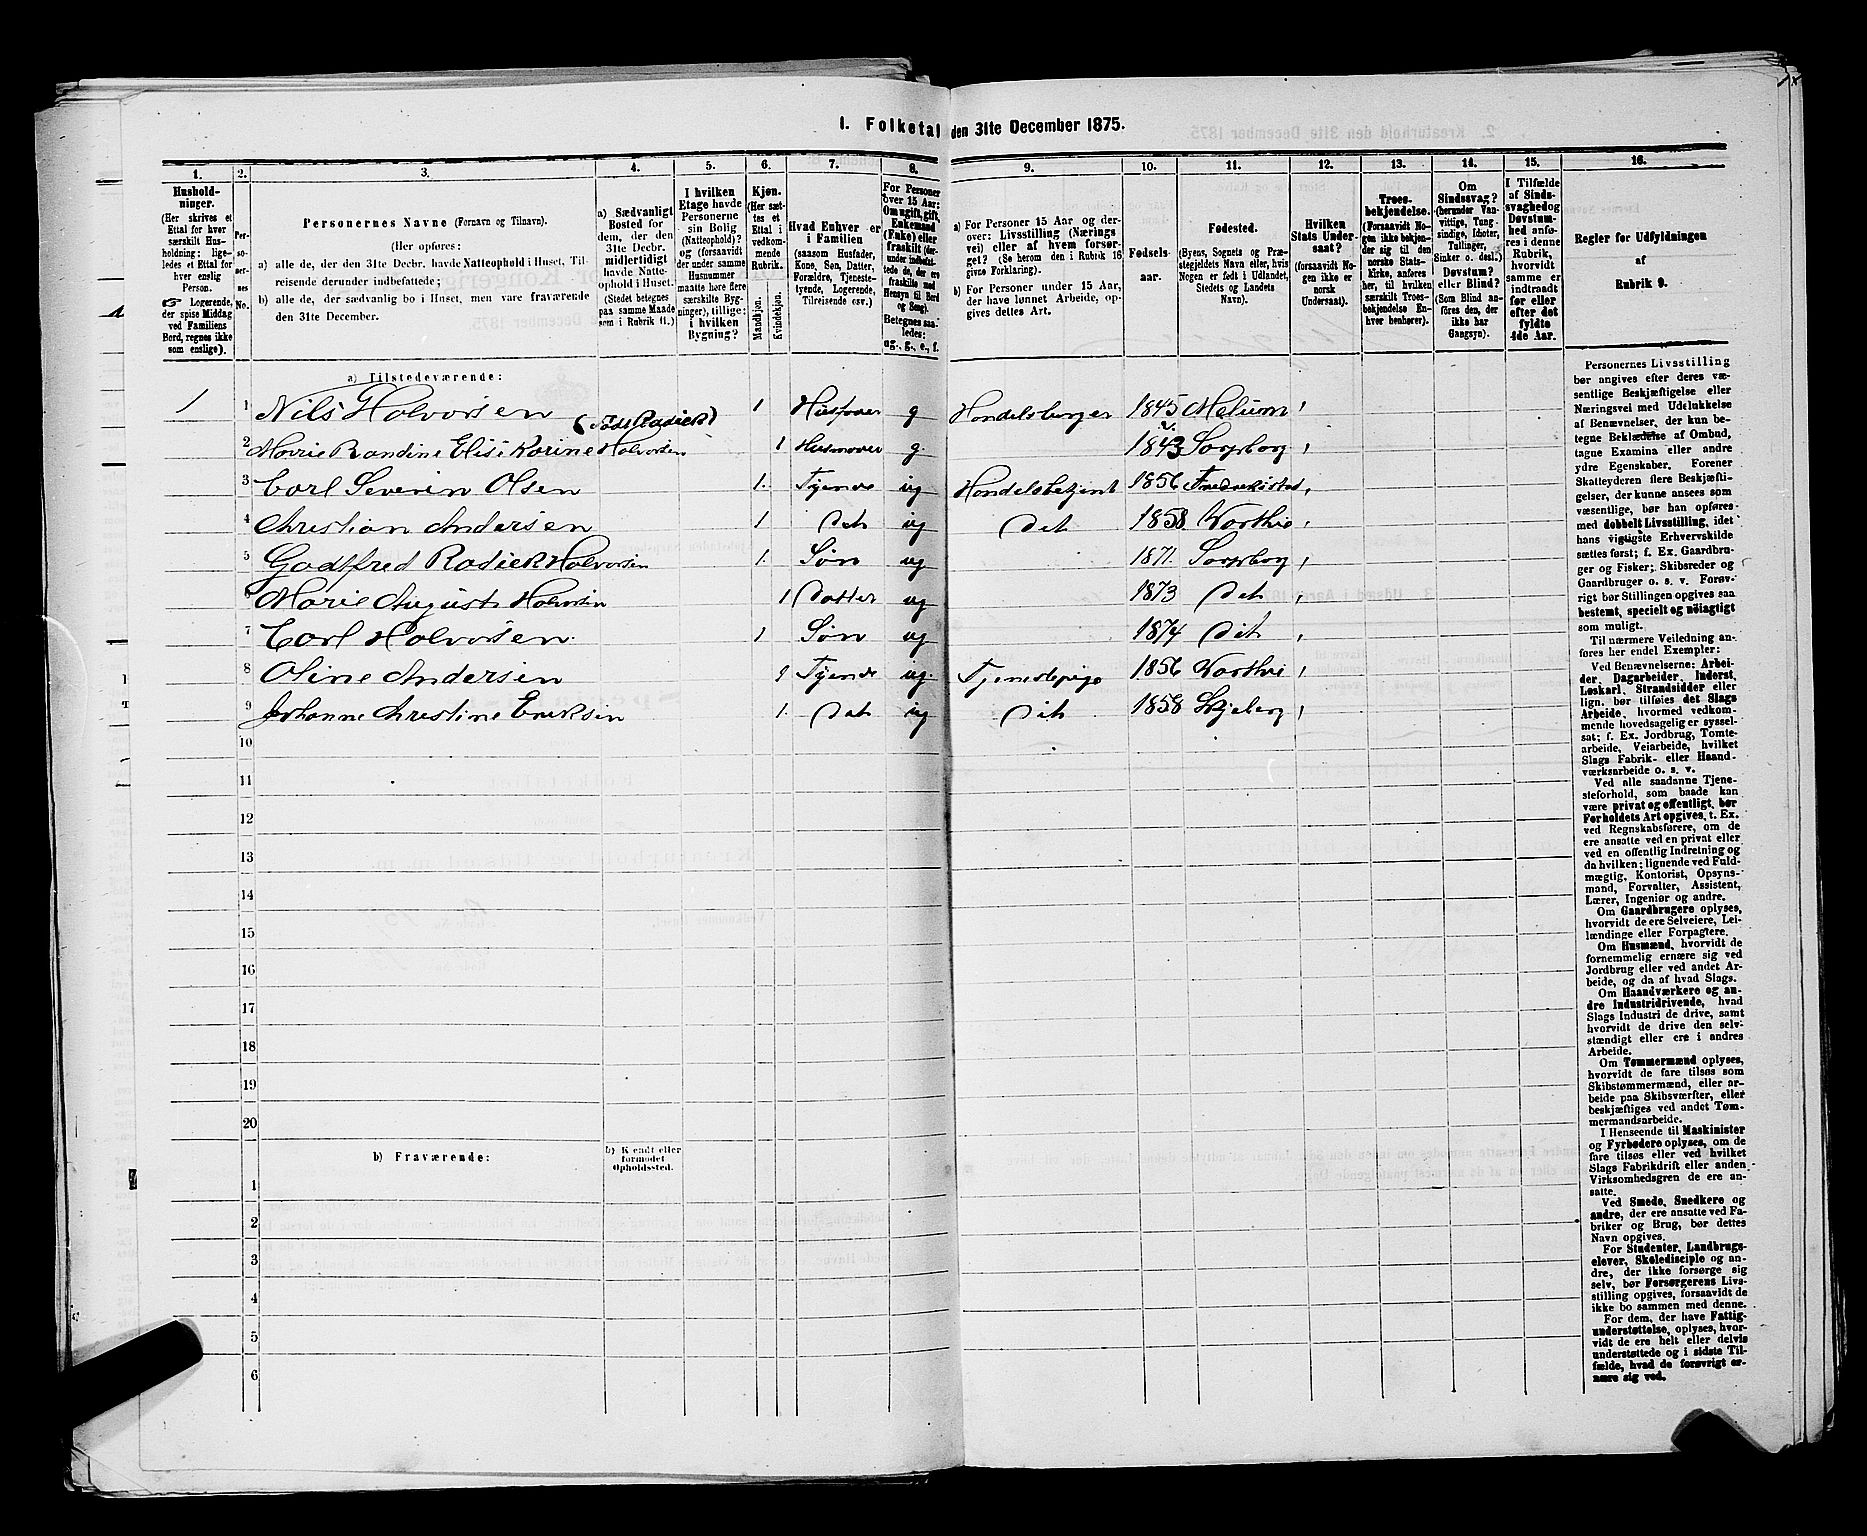 1. Folketal den 31te December 1875.
1. 2. 3. 4. 5. 6. 7. 8. 9. 10. 11. 12. 13. 14. 15. 16.
Hushold-
ninger.
(Her skrives et
Ettal for hver
særskilt Hus-
holdning; lige-
ledes et Ettal for
hver enslig
Person.
☞ Logerende,
der spise Middag
ved Familiens
Bord, regnes ikke
som enslige).
Per-
so-
ner-
nes
No.
Personernes Navne (Fornavn og Tilnavn).
(Her opføres:
a) alle de, der den 31te Decbr. havde Natteophold i Huset, Til-
reisende derunder indbefattede;
b) alle de, der sædvanlig bo i Huset, men vare fraværende
den 31te December.
a) Sædvanligt
Bosted for
dem, der den
31te Decbr.
midlertidigt
havde Natte-
ophold i Huset.
(Stedet betegnes
paa samme Maade
som i Rubrik 11.)
I hvilken
Etage havde
Personerne
sin Bolig
(Natteophold)?
og (forsaavidt
der under samme
Husnummer
maatte høre flere
særskilte Byg-
ninger), tillige:
i hvilken
Bygning?
Kjøn.
(Her sæt-
tes et
Ettal i
vedkom-
mende
Rubrik.
Mandkjøn.
Kvindekjøn.
Hvad Enhver er
i Familien
(saasom Husfader,
Kone, Søn, Datter,
Forældre, Tjeneste-
tyende, Logerende,
Tilreisende osv.)
For Personer
over 15 Aar:
Om ugift, gift,
Enkemand
(Enke) eller
fraskilt (der-
under indbefat-
tede de, der ere
fraskilte med
Hensyn til Bord
og Seng).
Betegnes saa-
ledes:
ug., g., e., f.
a) For Personer 15 Aar og der-
over: Livsstilling (Nærings
vei) eller af hvem forsør-
get? (Se herom den i Rubrik 16
givne Forklaring).
b) For Personer under 15 Aar,
der have lønnet Arbeide, op-
gives dettes Art.
Fødsels-
aar.
Fødested.
(Byens, Sognets og Præ-
stegjeldets Navn eller, hvis
Nogen er født i Udlandet,
Stedets og Landets
Navn).
Hvilken
Stats Under-
saat?
(forsaavidt No-
gen ikke er
norsk
Undersaat).
Troes-
bekjendelse.
(Forsaavidt No-
gen ikke bekjen-
der sig til den
norske Stats-
kirke, anføres
her, til hvilken
særskilt Troes-
bekjendelse En-
hver henhører).
Om
Sindssvag?
(herunder Van-
vittige, Tung-
sindige, Idioter,
Tullinger,
Sinker o. desl.)
Døvstum?
eller Blind?
(Som Blind an-
føres den, der
ikke har
Gangsyn).
I Tilfælde
af Sinds-
svaghed og
Døvstum-
hed anfø-
res i denne
Rubrik,
hvorvidt
samme er
indtraadt
før eller
efter det
fyldte
4de Aar.
Regler for Udfyldningen
af
Rubrik 9.
a) Tilstedeværende:
1 1 Nils Halvorsen 1 Husfader g Handelsborger 1845 Melum
(født Radich)
2 Marie Randine Elise Karine Halvorsen 1 Husmoder g. 1843 Sarpsborg
3 Carl Severin Olsen 1. Tyende ug Handelsbetjent 1856 Fredrikstad
4 Christian Andersen 1 Det ug Det 1858 Varthie
5 Godtfred Radich Halvorsen 1. Søn ug 1871. Sarpsborg
6 Marie August Halvorsen 1 Datter ug 1873 Det
7 Carl Halvorsen 1 Søn ug 1874 Det
8 Oline Andersen 1 Tyende ug. Tjenestepige 1856 Varthie
9 Johanne Christine Eriksen 1. Det ug Dit 1858 Skjeberg
10
11
12
13
14
15
16
17
18
19
20
b) Fraværende:
b) Kjendt eller
formodet
Opholdssted.
1
2
3
4
5
6
Personernes Livsstilling
bør angives efter deres væ-
sentlige Beskjæftigelse eller
Næringsvei med Udelukkelse
af Benævnelser, der kun be-
tegne Beklædelse af Ombud,
tagne Examina eller andre
ydre Egenskaber. Forener
Skatteyderen flere Beskjæfti-
gelser, der kunne ansees som
væsentlige, bør han opføres
med dobbelt Livsstilling, idet
hans vigtigste Erhvervskilde
sættes først; f. Ex. Gaardbru-
ger og Fisker; Skibsreder og
Gaardbruger o. s. v. Forøv-
rigt bør Stillingen opgives saa
bestemt, specielt og nøiagtigt
som muligt.
Til nærmere Veiledning an-
føres her endel Exempler:
Ved Benævnelserne: Arbei-
der, Dagarbeider, Inderst,
Løskarl, Strandsidder eller
lign. bør tilføies det Slags
Arbeide, hvormed vedkom-
mende hovedsagelig er syssel-
sat; f. Ex. Jordbrug, Tomte-
arbeide, Veiarbeide, hvilket
Slags Fabrik- eller Haand-
værksarbeide o. s. v.
Ved alle saadanne Tjene-
steforhold, som baade kan
være privat og offentligt, bør
Forholdets Art opgives, t. Ex.
ved Regnskabsførere, om de
ere ansatte ved en privat eller
ved en offentlig Indretning og
da hvilken; lignende ved Fuld-
mægtig, Kontorist, Opsyns-
mand, Forvalter, Assistent,
Lærer, Ingeniør og andre.
Om Gaardbrugere oplyses,
hvorvidt de ere Selveiere, Lei-
lændinge eller Forpagtere.
Om Husmænd, hvorvidt de
fornemmelig ernære sig ved
Jordbrug eller ved andet Ar-
beide, og da af hvad Slags.
Om Haandværkere og an-
dre Industridrivende, hvad
Slags Industri de drive, samt
hvorvidt de drive den selv-
stændigt eller ere i andres
Arbeide.
Om Tømmermænd oplyses,
hvorvidt de fare tilsøs som
Skibstømmermænd, eller ar-
beide paa Skibsværfter, eller
beskjæftiges ved andet Tøm-
mermandsarbeide.
I Henseende til Maskinister
og Fyrbødere oplyses, om de
fare tilsøs eller ved hvilket
Slags Fabrikdrift eller anden
Virksomhedsgren de ere an-
satte.
Ved Smede, Snedkere og
andre, der ere ansatte ved Fa-
briker og Brug, bør dettes
Navn opgives.
For Studenter, Landbrugs-
elever, Skoledisciple og an-
dre, der ikke forsørge sig
selv, bør Forsørgerens Livs-
stilling opgives, forsaavidt de
ikke bo sammen med denne.
For dem, der have Fattig-
understøttelse, oplyses, hvor-
vidt de ere helt eller delvis
understøttede og i sidste Til-
fælde, hvad de forøvrigt er-
nære sig ved.